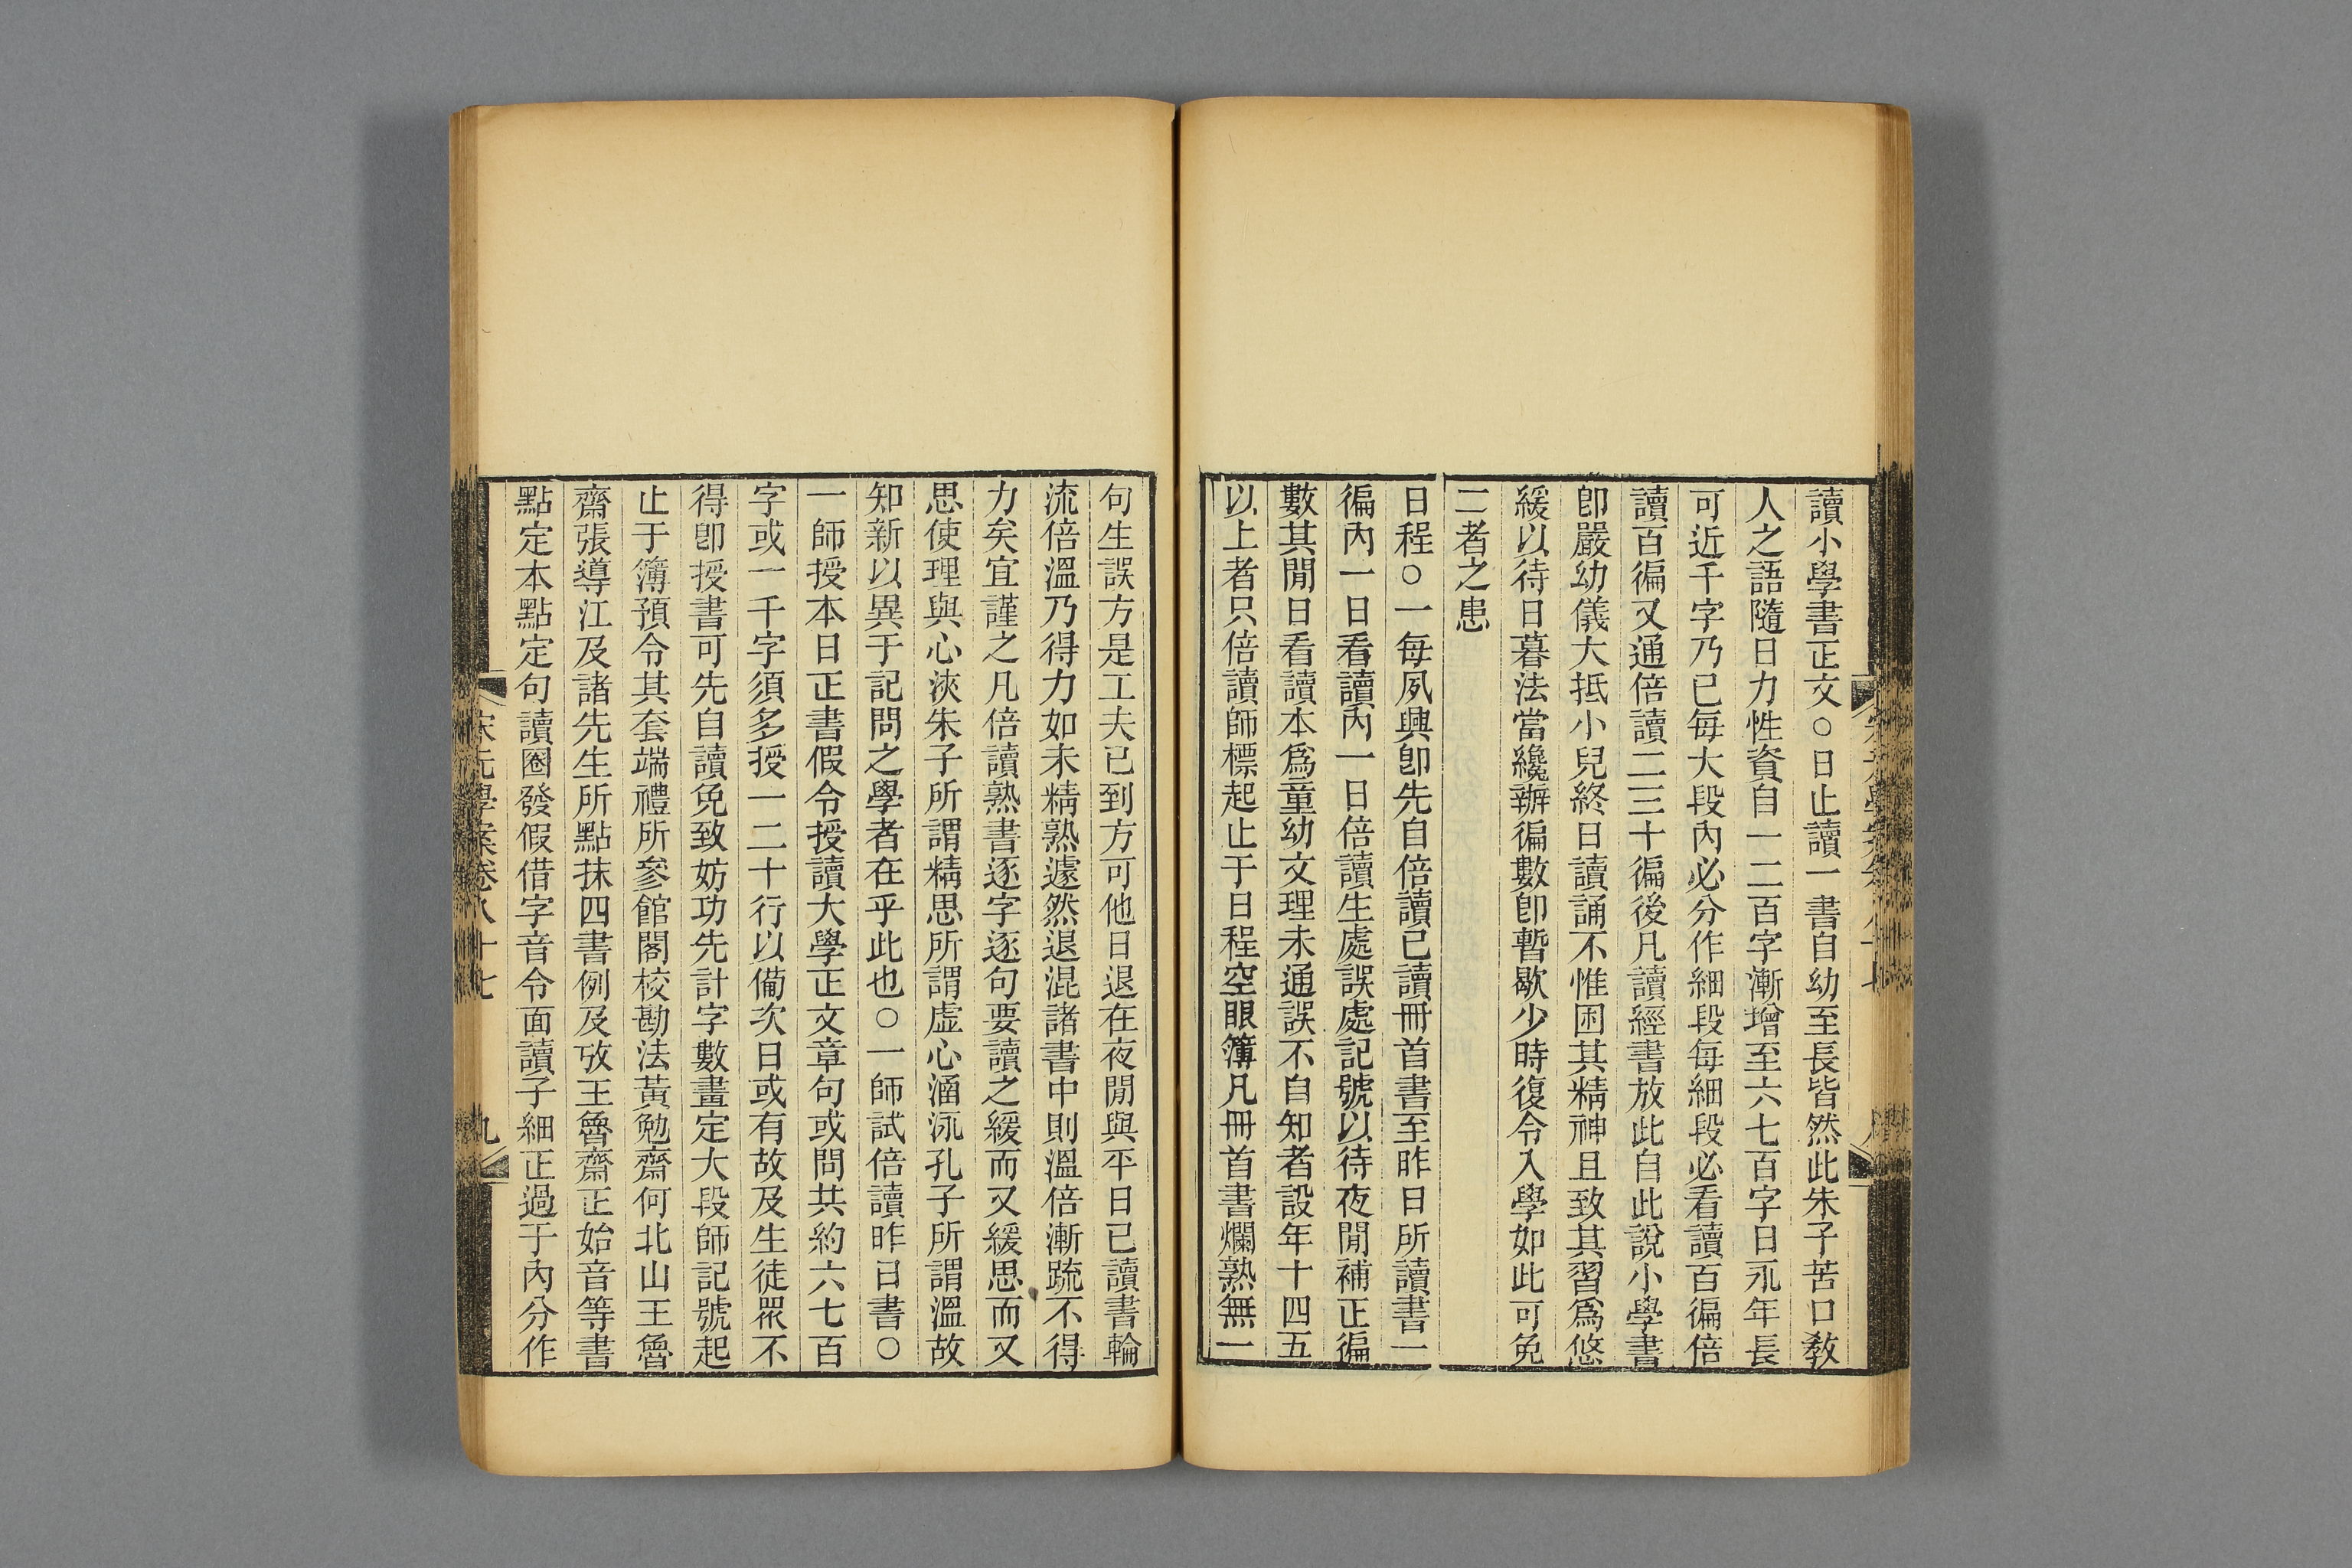 讀小學書正文○日止讀一書自幼至長皆然此朱子苦口教
人之語隨日力性資自一二百字漸增至六七百字日永年長
可近千字乃已每大段內必分作細段每細段必看讀百徧倍
讀百徧又通倍讀二三十徧後凡讀經書放此自此說小學書
卽嚴幼儀大抵小兒終日讀誦不惟困其精神且致其習爲悠
緩以待日暮法當纔辦徧數卽暫歇少時復令入學如此可免
二者之患
日程○一每夙興卽先自倍讀已讀冊首書至昨日所讀書一
徧內一日看讀內一日倍讀生處誤處記號以待夜閒補正徧
數其閒日看讀本爲童幼文理未通誤不自知者設年十四五
以上者只倍讀師標起止于日程空眼簿凡冊首書爛熟無一
句生誤方是工夫已到方可他日退在夜閒與平日已讀書輪
流倍溫乃得力如未精熟遽然退混諸書中則溫倍漸疏不得
力矣宜謹之凡倍讀熟書逐字逐句要讀之緩而又緩思而又
思使理與心浹朱子所謂精思所謂虛心涵泳孔子所謂溫故
知新以異于記問之學者在乎此也○一師試倍讀昨日書○
一師授本日正書假令授讀大學正文章句或問共約六七百
字或一千字須多授一二十行以備次日或有故及生徒眾不
得卽授書可先自讀免致妨功先計字數畫定大段師記號起
止于簿預令其套端禮所參館閣校勘法黃勉齋何北山王魯
齋張導江及諸先生所點抹四書例及攷王魯齋正始音等書
點定本點定句讀圈發假借字音令面讀子細正過于內分作
宋元學案卷八十七
九